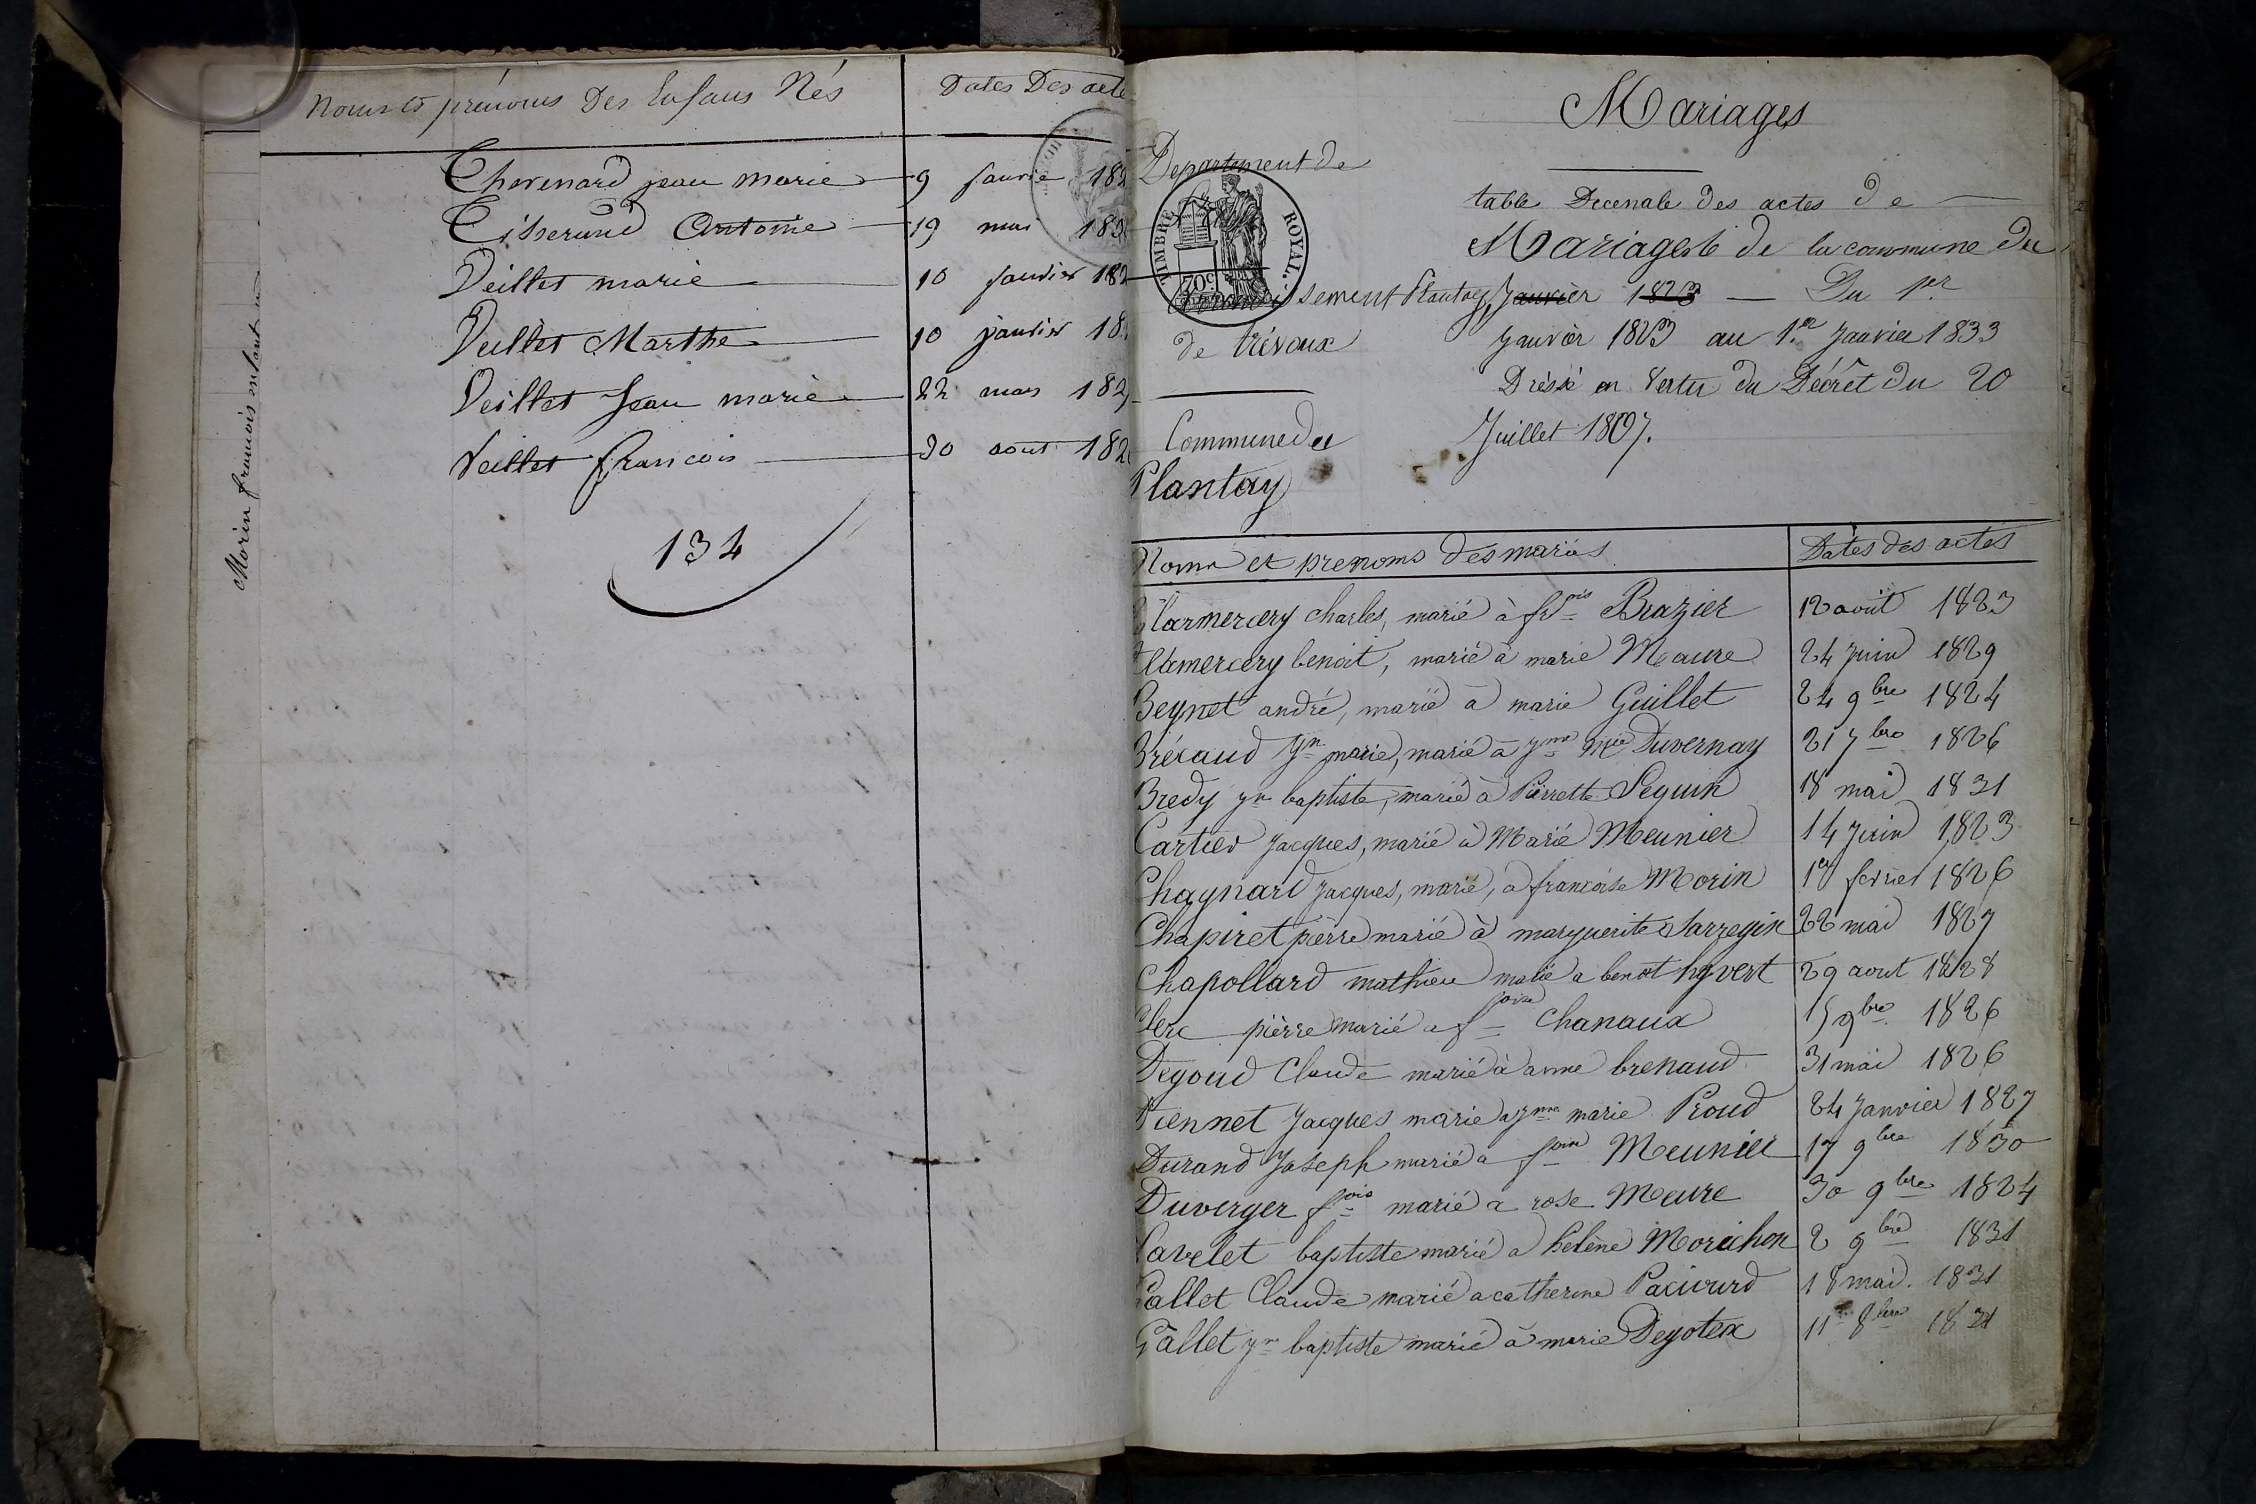 Noms et prénoms Des Enfans Nés
Dates Des acte
Thevenard jean marie 9 janvie 182
Tisserand Antoine 19 mai 18
Veillet marie 10 janvier 182
Veillet Marthe 10 janvier 18
Veillet Jean marie 22 mars 182
Veillet francois 30 aout 182
134
Morin francois enfant
Mariages
Departement de
TIMBRE ROYAL
70c
table Decenale des actes de
Mariages de la commune du
Plantay Janvier 1823 — Du 1er
Janvier 1823 au 1er Janvier 1833
Dréssé en Vertu du Décrêt du 20
Juillet 1807.
sement
de trévoux
Commune du
Plantay
Noms et prenoms des mariés
Dates des actes
larmercery charles, marié à frse Brazier 12 août 1823
benoit, marié à marie Meaure 24 Juin 1829
Beynet andré, marié à marie Guillet 24 9bre 1824
Brévaud Jn marie, marié à Jnne Mie Duvernay 21 7bre 1826
Bredy Jn baptiste, marié à Pierrette Seguin 18 mai 1831
Cartier Jacques, marié à Marie Meunier 14 Juin 1823
Chaynard Jacques, marié, à francoise Morin 1er fevrier 1826
Chapiret pièrre marié à marguerite Sarzegin 22 mai 1827
Chapollard mathieu marié a benoit hyvert 29 aout 1828
Clerc pièrre marié a foise Chanaux 15 9bre 1826
Degoud Claude marié à anne brenaud 31 mai 1826
Jacques marié a Jnne marie Proud 24 Janvier 1827
Durand Joseph marié a foise Meunier 17 9bre 1830
Duverger fois marié a rose Meure 30 9bre 1824
baptiste marié a hélène Morichon 2 9bre 1831
Gallet Claude marié a catherine 18 mai. 1831
Gallet Jn baptiste marié à marie Deyotex 11 8bre 1831